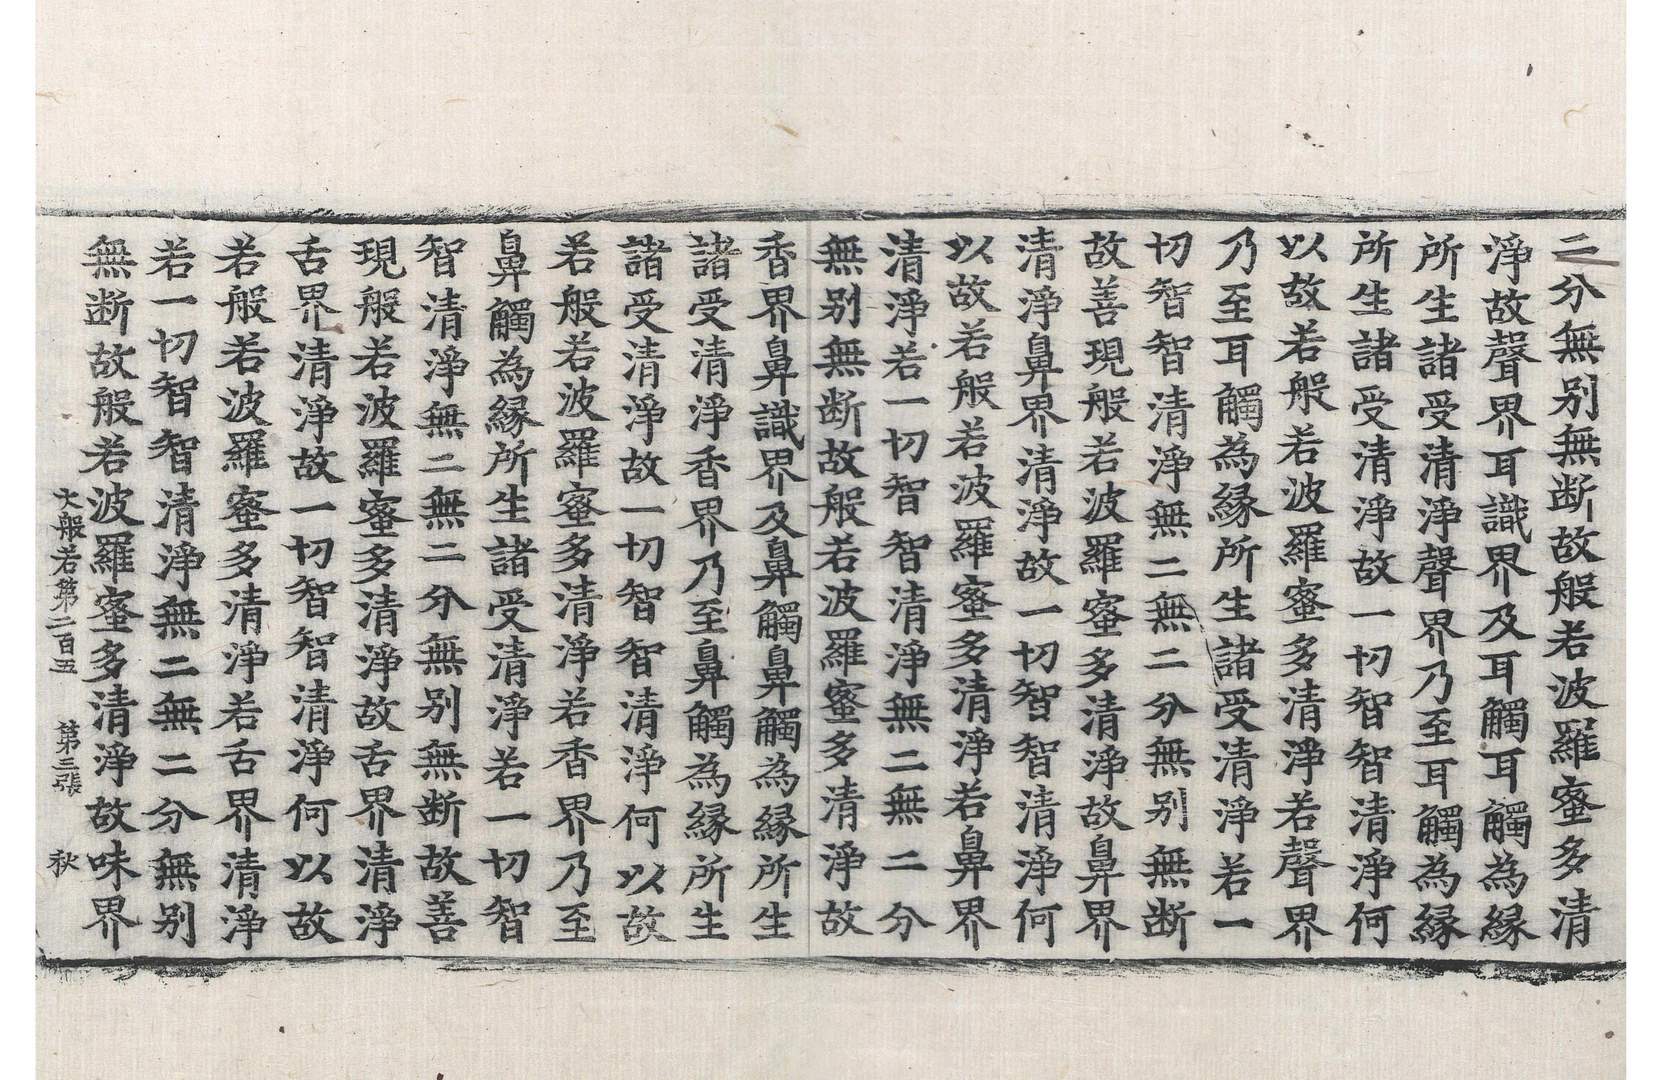 二分無别無断故般若波羅蜜多清
淨故聲界耳識界及耳觸耳觸為緣
所生諸受清淨聲界乃至耳觸為緣
所生諸受清淨故一切智智清淨何
以故若般若波羅蜜多清淨若聲界
乃至耳觸為緣所生諸受清淨若一
切智智清淨無二無二分無别無断
故善現般若波羅蜜多清淨故鼻界
清淨鼻界清淨故一切智智清淨何
以故若般若波羅蜜多清淨若鼻界
清淨若一切智智清淨無二無二分
無别無断故般若波羅蜜多清淨故
香界鼻識界及鼻觸鼻觸為緣所生
諸受清淨香界乃至鼻觸為緣所生
諸受清淨故一切智智清淨何以故
若般若波羅蜜多清淨若香界乃至
鼻觸為緣所生諸受清淨若一切智
智清淨無二無二分無别無断故善
現般若波羅蜜多清淨故舌界清淨
舌界清淨故一切智智清淨何以故
若般若波羅蜜多清淨若舌界清淨
若一切智智清淨無二無二分無别
無断故般若波羅蜜多清淨故味界
大般若第二百五 第三張 秋